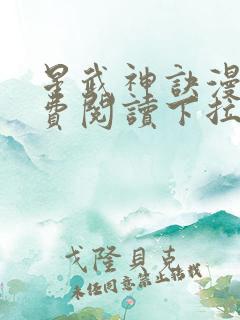 星武神訣漫
費閱讀下拉
戈隆貝克
未经同意禁止转载